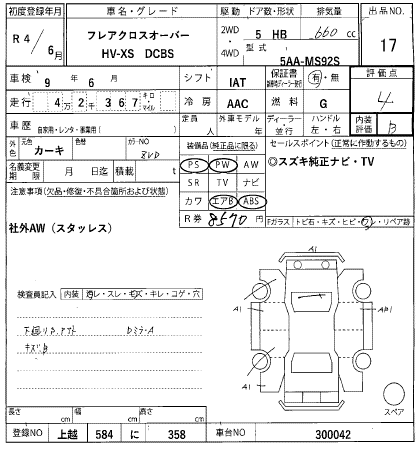 初度登録年月 車名・グレード 駆動 ドア数・形状 排気量 出品NO.
R4/6月 フレアクロスオーバー HV-XS DCBS 2WD・4WD 5 HB 660cc 17
型式 5AA-MS92S
車検 9年6月 シフト IAT 保証書 有・無 評価点 4
走行 4万2千367 キロ・マイル 冷房 AAC 燃料 G
車歴 自家用・レンタ・事業用( ) 定員 人 外車モデル 年 ディーラー・並行 ハンドル 左・右 内装評価 B
外色 元色 カーキ 色替 カラーNO
装備品(純正品に限る) セールスポイント(正常に作動するもの)
名義変更期限 月 日迄 積載 t
PS PW AW
◎スズキ純正ナビ・TV
SR TV ナビ
注意事項(欠品・修復・不具合箇所および状態)
カワ エアB ABS
R券 8570円
Fガラス トビ石・キズ・ヒビ・ワレ・リペア跡
社外AW(スタッレス)
A1
検査員記入 内装 コレ・スレ・キズ・キレ・コゲ・穴
A1
A1
下廻りサ、アフト DミラーA
キズ、B
A1
スペア
長さ cm 幅 cm 高さ cm
登録NO 上越 584 に 358 車台NO 300042